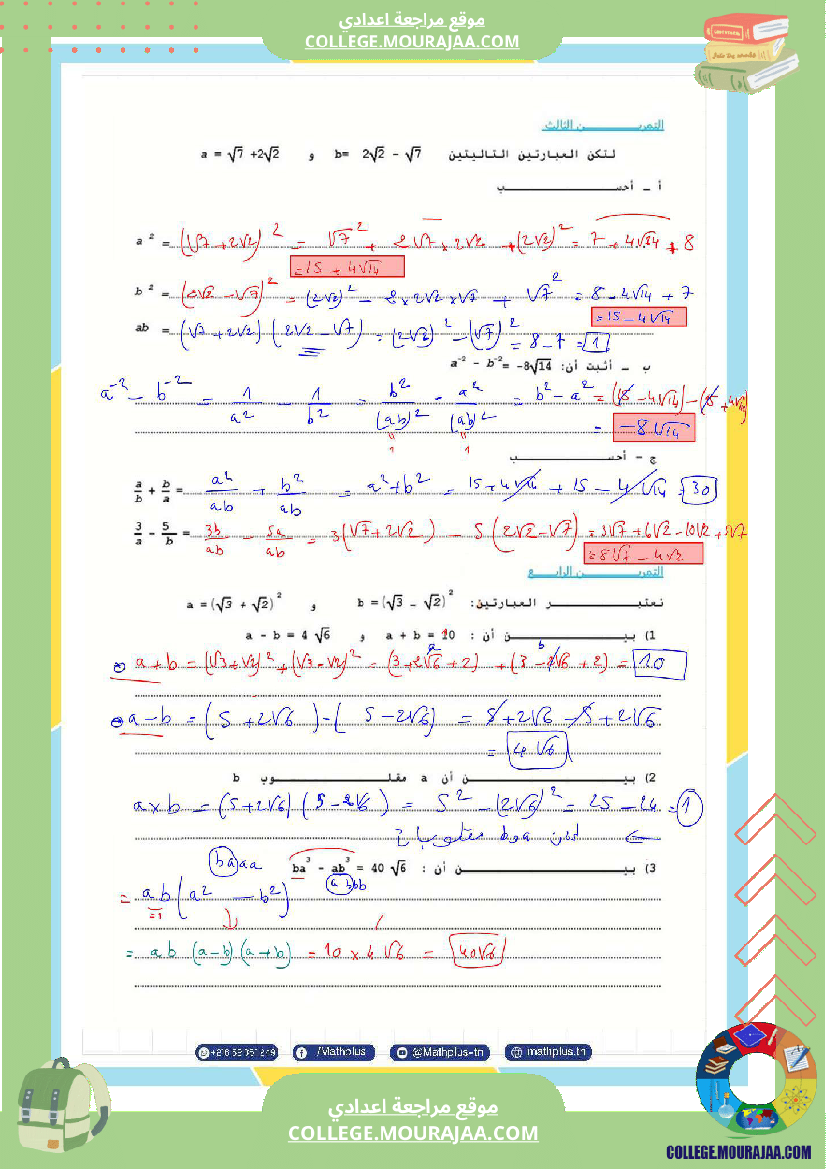 موقع مراجعة اعدادي
COLLEGE.MOURAJAA.COM
التمريـــن الثالث
لتكن العبارتين التاليتين b= 2√2 - √7 و a = √7 +2√2
أ ـ أحســـب
a² = (√7 + 2√2)² = √7² + 2√7 × 2√2 + (2√2)² = 7 + 4√14 + 8
= 15 + 4√14
b² = (2√2 - √7)² = (2√2)² - 2×2√2×√7 + √7² = 8 - 4√14 + 7
= 15 - 4√14
ab = (√7 + 2√2)(2√2 - √7) = (2√2)² - (√7)² = 8 - 7 = 1
ب ـ أثبت أن: a⁻² - b⁻² = -8√14
a⁻² - b⁻² = 1/a² - 1/b² = b²/(ab)² - a²/(ab)² = b² - a² = (15 - 4√14) - (15 + 4√14)
= -8√14
ج - أحســـب
a/b + b/a = a²/ab + b²/ab = a² + b² = 15 + 4√14 + 15 - 4√14 = 30
3/a - 5/b = 3b/ab - 5a/ab = 3(√7 + 2√2) - 5(2√2 - √7) = 3√7 + 6√2 - 10√2 + 5√7
= 8√7 - 4√2
التمريـــن الرابـــع
نعتبـــر العبارتين: b = (√3 - √2)² و a = (√3 + √2)²
1) بيـــن أن : a + b = 10 و a - b = 4 √6
a + b = (√3 + √2)² + (√3 - √2)² = (3 + 2√6 + 2) + (3 - 2√6 + 2) = 10
a - b = (5 + 2√6) - (5 - 2√6) = 5 + 2√6 - 5 + 2√6
= 4√6
2) بيـــن أن a مقلـــوب b
a × b = (5 + 2√6)(5 - 2√6) = 5² - (2√6)² = 25 - 24 = 1
3) بيـــن أن : ba³ - ab³ = 40 √6
baaa
abbb
= ab(a² - b²)
=1
= ab (a-b)(a+b) = 10 × 4√6 = 40√6
/Mathplus
@Mathplus-tn
mathplus.tn
موقع مراجعة اعدادي
COLLEGE.MOURAJAA.COM
COLLEGE.MOURAJAA.COM